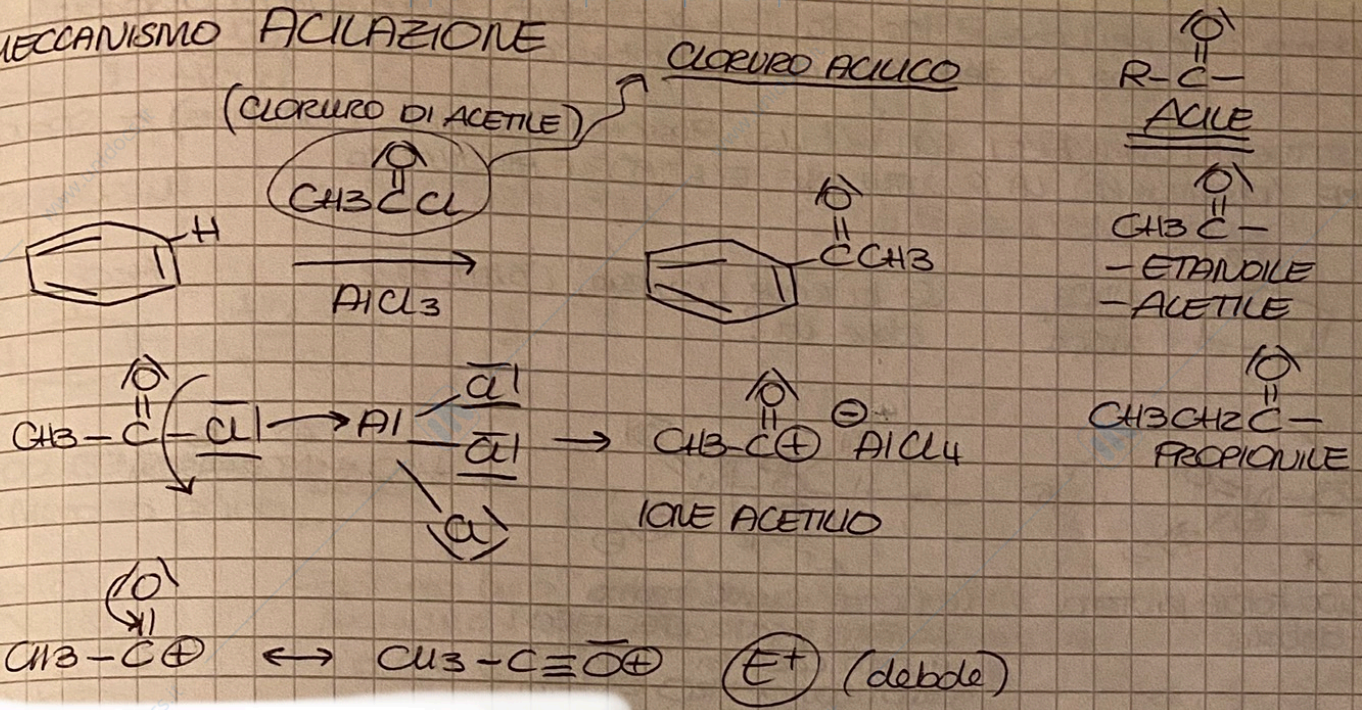 MECCANISMO ACILAZIONE
CLORURO ACILICO
(CLORURO DI ACETILE)
O
R-C-
ACILE
O
CH3CCl
H
AlCl3
O
CCH3
O
CH3C-
-ETANOILE
-ACETILE
O
CH3-C-Cl → Al Cl Cl Cl → O CH3-C⊕ ⊖AlCl4
IONE ACETILIO
O
CH3CH2C-
PROPIONILE
O
CH3-C⊕ ↔ CH3-C≡O⊕ E+ (debole)